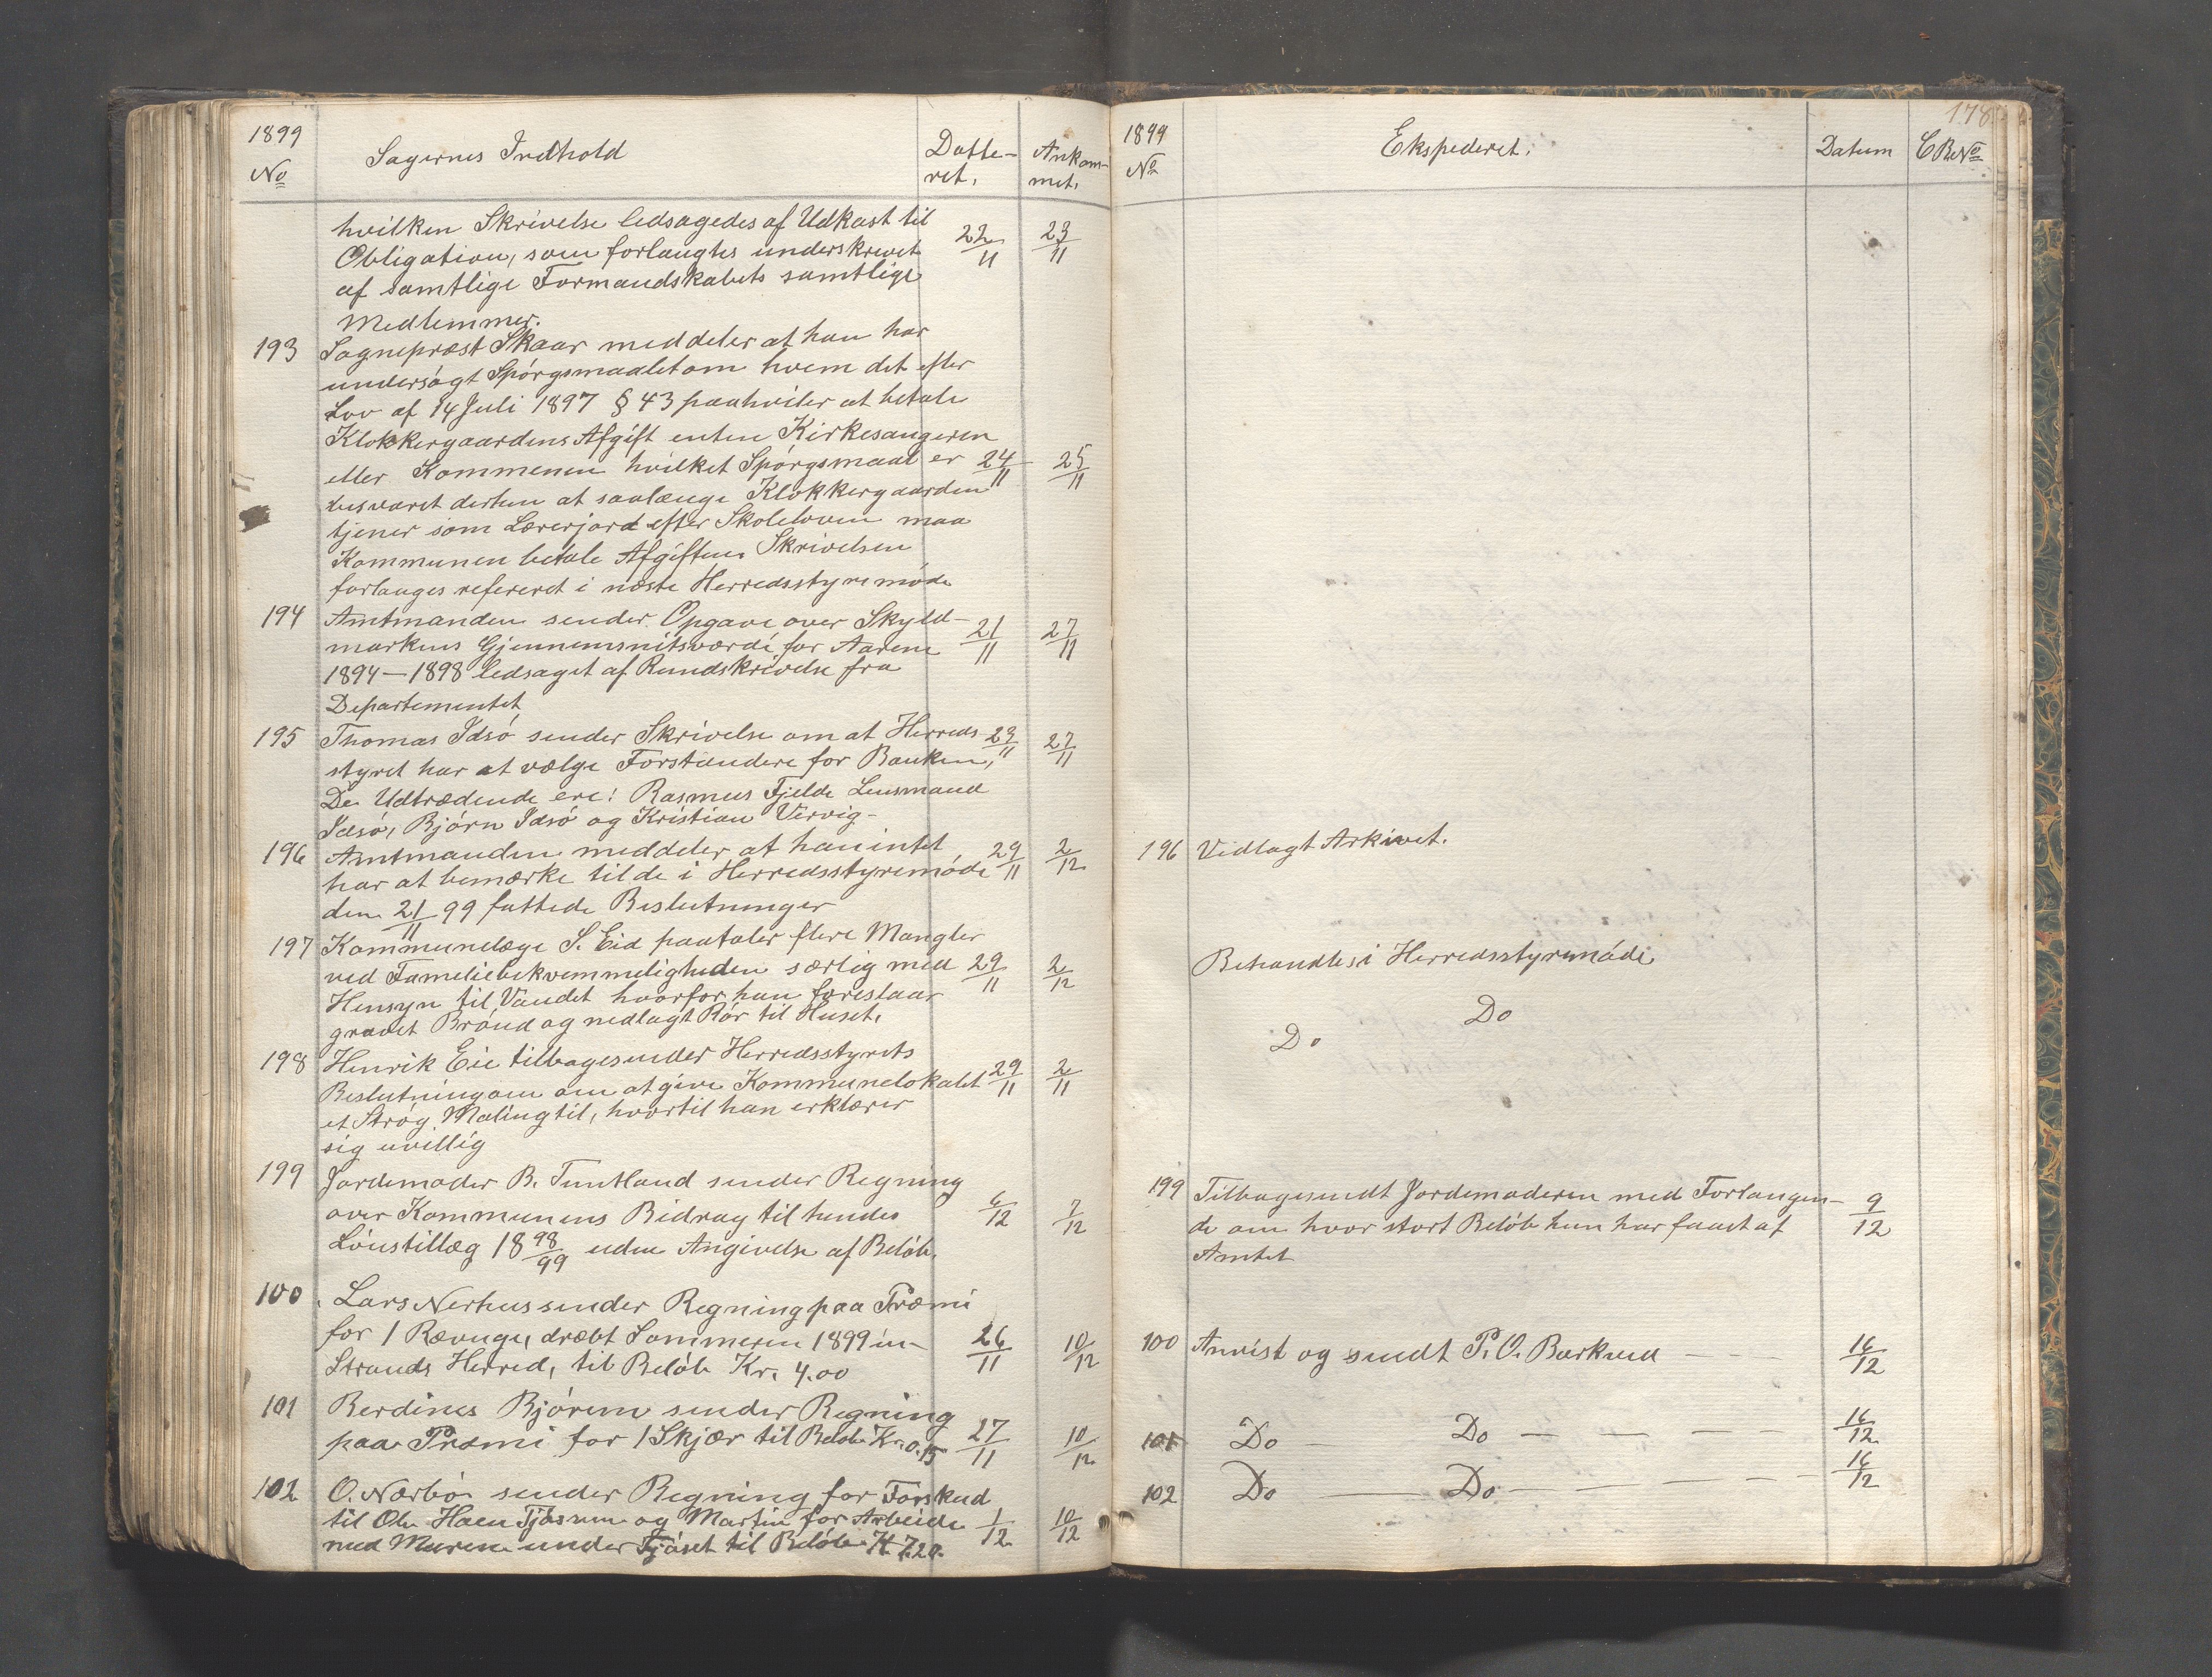 1899
No
Sagernes Indhold
Datte-
ret.
Ankom-
met.
hvilken Skrivelse ledsagedes af Udkast til
Obligation, som forlangtes underskrevet 22/11 23/11
af samtlige Formandskabets samtlige
Medlemmer.
193 Sognepræst Skaar meddeler at han har
undersøgt Spørgsmaalet om hvem det efter
Lov af 14 Juli 1897 § 43 paahviler at betale
Klokkergaardens Afgift enten Kirkesangeren
eller Kommunen hvilket Spørgsmaal er 24/11 25/11
besvaret derten at saalænge Klokkergaarden
tjener som Lærerjord efter Skoleloven maa
Kommunen betale Afgiften. Skrivelsen
forlanges refereret i næste Herredsstyremøde
194 Amtmanden sender Opgave over Skyld-
markens Gjennemsnitsværdi for Aarene 21/11 27/11
1894–1898 ledsaget af Rundskrivelse fra
Departementet
195 Thomas Idsø sender Skrivelse om at Herreds- 23/11 27/11
styret har at vælge Forstandere for Banken,
De Udtrædende ere: Rasmus Fjelde Lensmand
Idsø, Bjørn Idsø og Kristian Vervig-
196 Amtmanden meddeler at han intet 29/11 2/12
har at bemærke til de i Herredsstyremøde
den 21/11 99 fattede Beslutninger
197 Kommunelæge S. Eid paataler flere Mangler
ved Fameliebekvemmeligheden særleg med 29/11 2/12
Hensyn til Vandet hvorfor han foreslaar
gravet Brønd og nedlagt Rør til Huset.
198 Henrik Eie tilbagesender Herredsstyrets
Beslutning om om at give Kommunelokalet 29/11 2/11
et Strøg Maling til, hvortil han erklærer
sig uvillig
199 Jordemoder B. Tuntland sender Regning
over Kommunens Bidrag til hendes 6/12 7/12
Lønstillæg 18 98/99 uden Angivelse af Beløb.
100 Lars Nerhus sender Regning paa Præmi
for 1 Rævunge, dræbt Sommeren 1899 in- 26/11 10/12
Strands Herred, til Beløb Kr. 4.00
101 Berdines Bjørem sender Regning
paa Præmi for 1 Skjær til Beløb Kr. 0.15 27/11 10/12
102 O. Nærbø sender Regning for Forskud
til Ole Haen Tjøsrum og Martin for Arbeide 1/12 10/12
med Muren under Fjøset til Beløb K 7.20.
178
1899
No
Ekspederet.
Datum
C B No
196 Vidlagt Arkivet.
Behandles i Herredsstyremøde
Do Do
199 Tilbagesendt Jordemoderen med Forlangen- 9/12
de om hvor stort Beløb hun har faaet af
Amtet
100 Anvist og sendt P. O. Barkved — - - 16/12
101 Do — Do — — — — 16/12
102 Do — Do — — — — 16/12